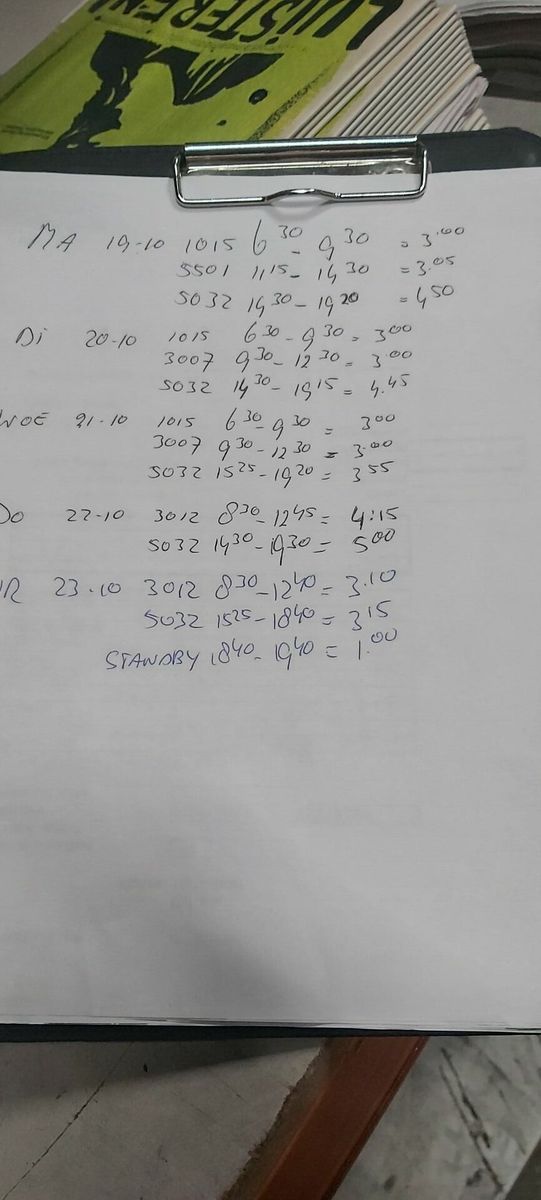 LUiSTEREN!
MA 19-10 1015 6³⁰ - 9³⁰ = 3.⁰⁰
5501 11¹⁵ - 14³⁰ = 3.⁰⁵
5032 14³⁰ - 19²⁰ = 4⁵⁰
Di 20-10 1015 6³⁰ - 9³⁰ = 3⁰⁰
3007 9³⁰ - 12³⁰ = 3.⁰⁰
5032 14³⁰ - 19¹⁵ = 4.45
WOE 21-10 1015 6³⁰ - 9³⁰ = 3⁰⁰
3007 9³⁰ - 12³⁰ = 3.⁰⁰
5032 15²⁵ - 19²⁰ = 3⁵⁵
DO 22-10 3012 8³⁰ - 12⁴⁵ = 4:15
5032 14³⁰ - 19³⁰ = 5⁰⁰
VR 23-10 3012 8³⁰ - 12⁴⁰ = 3.10
5032 15²⁵ - 18⁴⁰ = 3¹⁵
STANDBY 18⁴⁰ - 19⁴⁰ = 1.⁰⁰